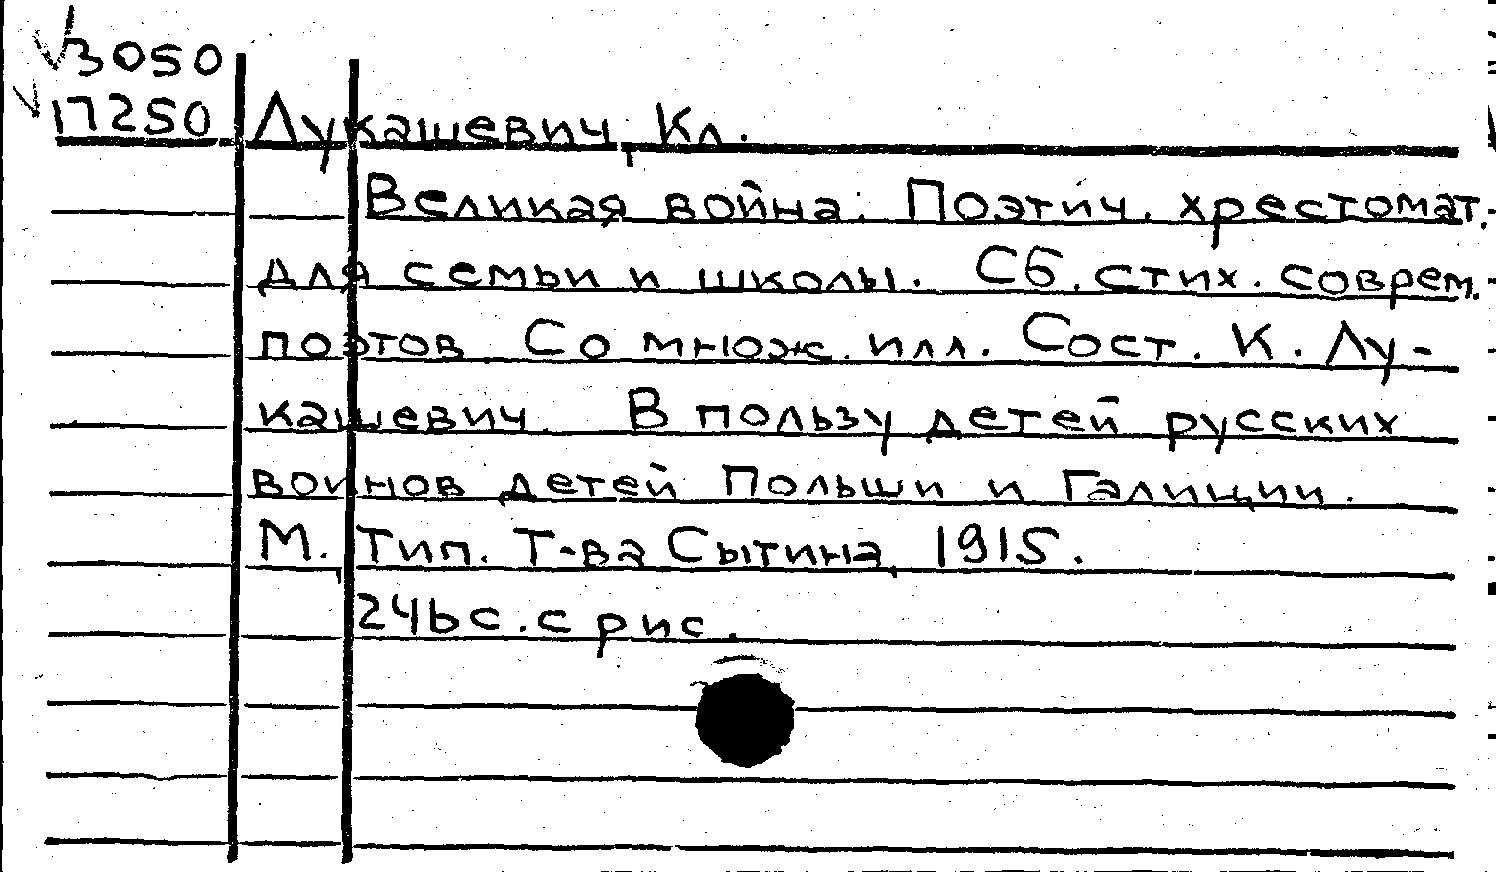 3050
17250
Лукашевич, Кл.
Великая война. Поэтич. хрестомат.
для семьи и школы. Сб. стих. соврем.
поэтов. Со множ. илл. Сост. К. Лу-
кашевич. В пользу детей русских
воинов детей Польши и Галиции.
М., Тип. Т-ва Сытина, 1915.
246 с. с рис.